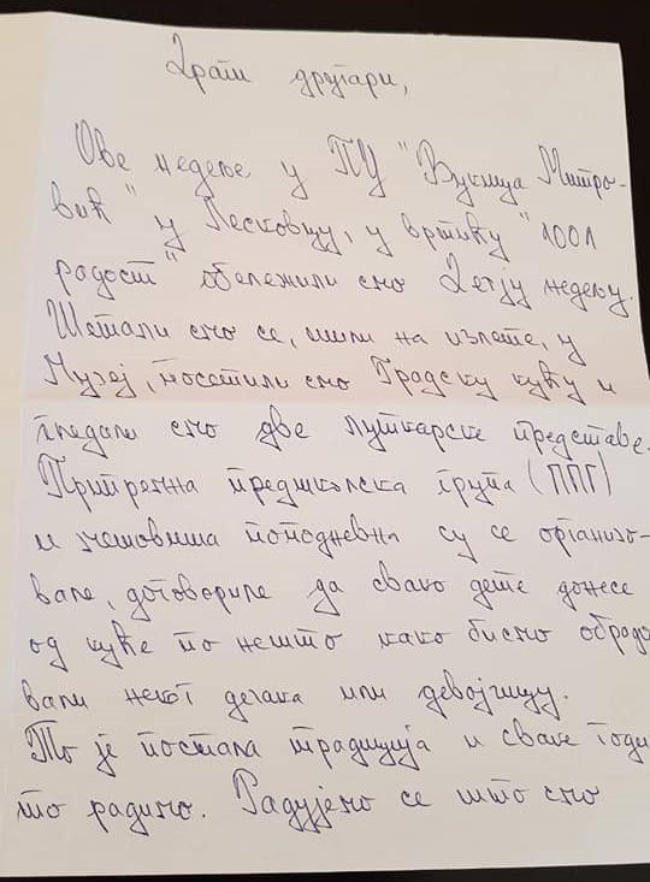 Драги другари,
Ове недеље у ПУ "Вукица Митро-
вић" у Лесковцу, у вртићу "1001
радост" обележили смо Дечју недељу.
Шетали смо се, ишли на излете, у
Музеј, посетили смо Градску кућу и
гледали смо две луткарске представе.
Припремна предшколска група (ППГ)
и мешовита поподневна су се организо-
вале, договориле да свако дете донесе
од куће по нешто како бисмо обрадо
вали неког дечака или девојчицу.
То је постала традиција и сваке годи
то радимо. Радујемо се што смо